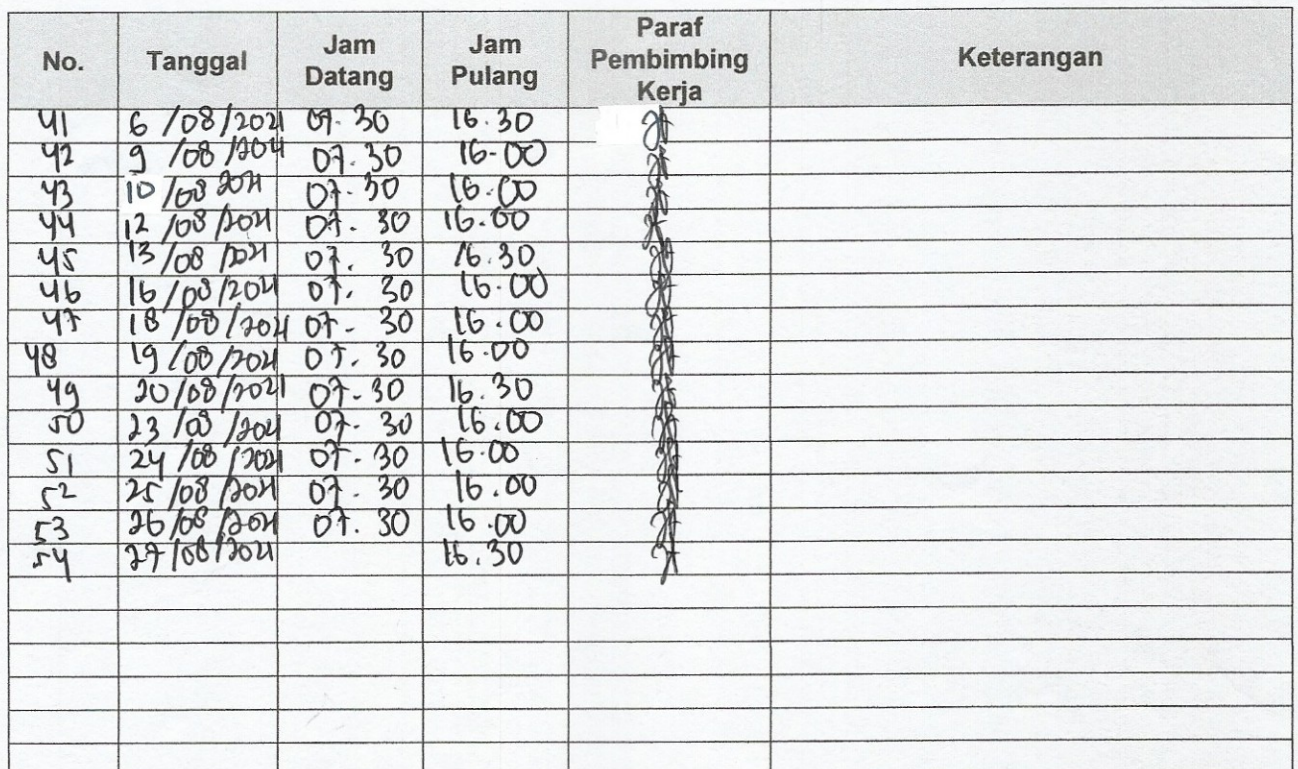 No. Tanggal Jam Datang Jam Pulang Paraf Pembimbing Kerja Keterangan
41 6/08/2021 07.30 16.30
42 9/08/2021 07.30 16.00
43 10/08 2021 07.30 16.00
44 12/08/2021 07.30 16.00
45 13/08/2021 07. 30 16.30
46 16/08/2021 07. 30 16.00
47 18/08/2021 07- 30 16.00
48 19/08/2021 07.30 16.00
49 20/08/2021 07.30 16.30
50 23/08/2021 07. 30 16.00
51 24/08/2021 07.30 16.00
52 25/08/2021 07. 30 16.00
53 26/08/2021 07. 30 16.00
54 27/08/2021 16.30